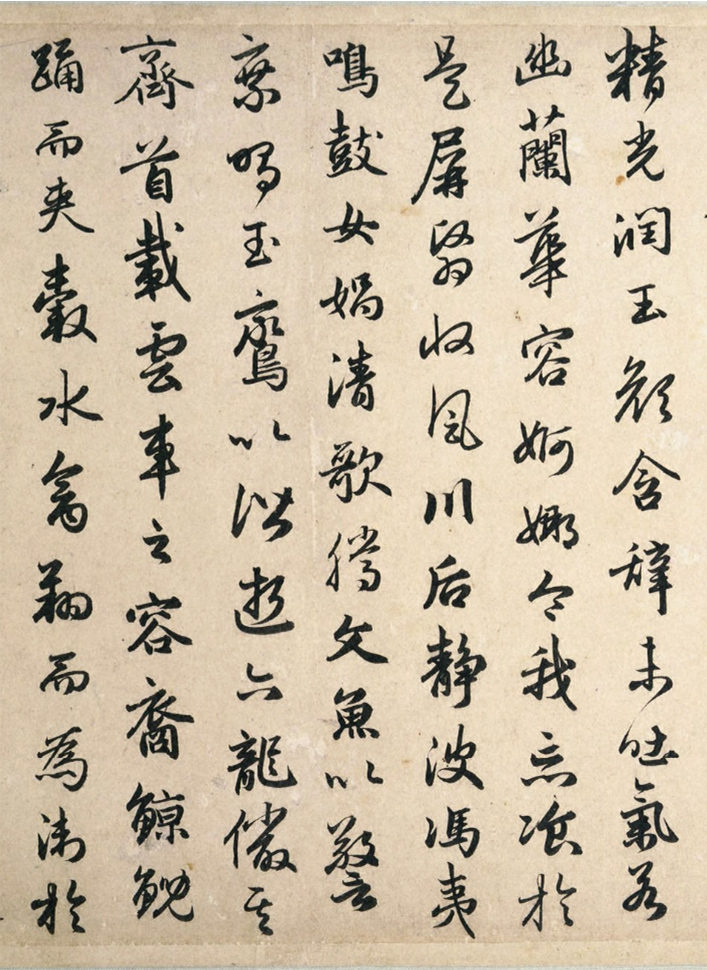 精光潤玉顏含辭未吐氣若
幽蘭華容婀娜令我忘飡於
是屏翳收風川后靜波馮夷
鳴鼓女媧清歌騰文魚以警
乘鳴玉鸞以偕逝六龍儼其
齊首載雲車之容裔鯨鯢
踊而夾轂水禽翔而為衛於